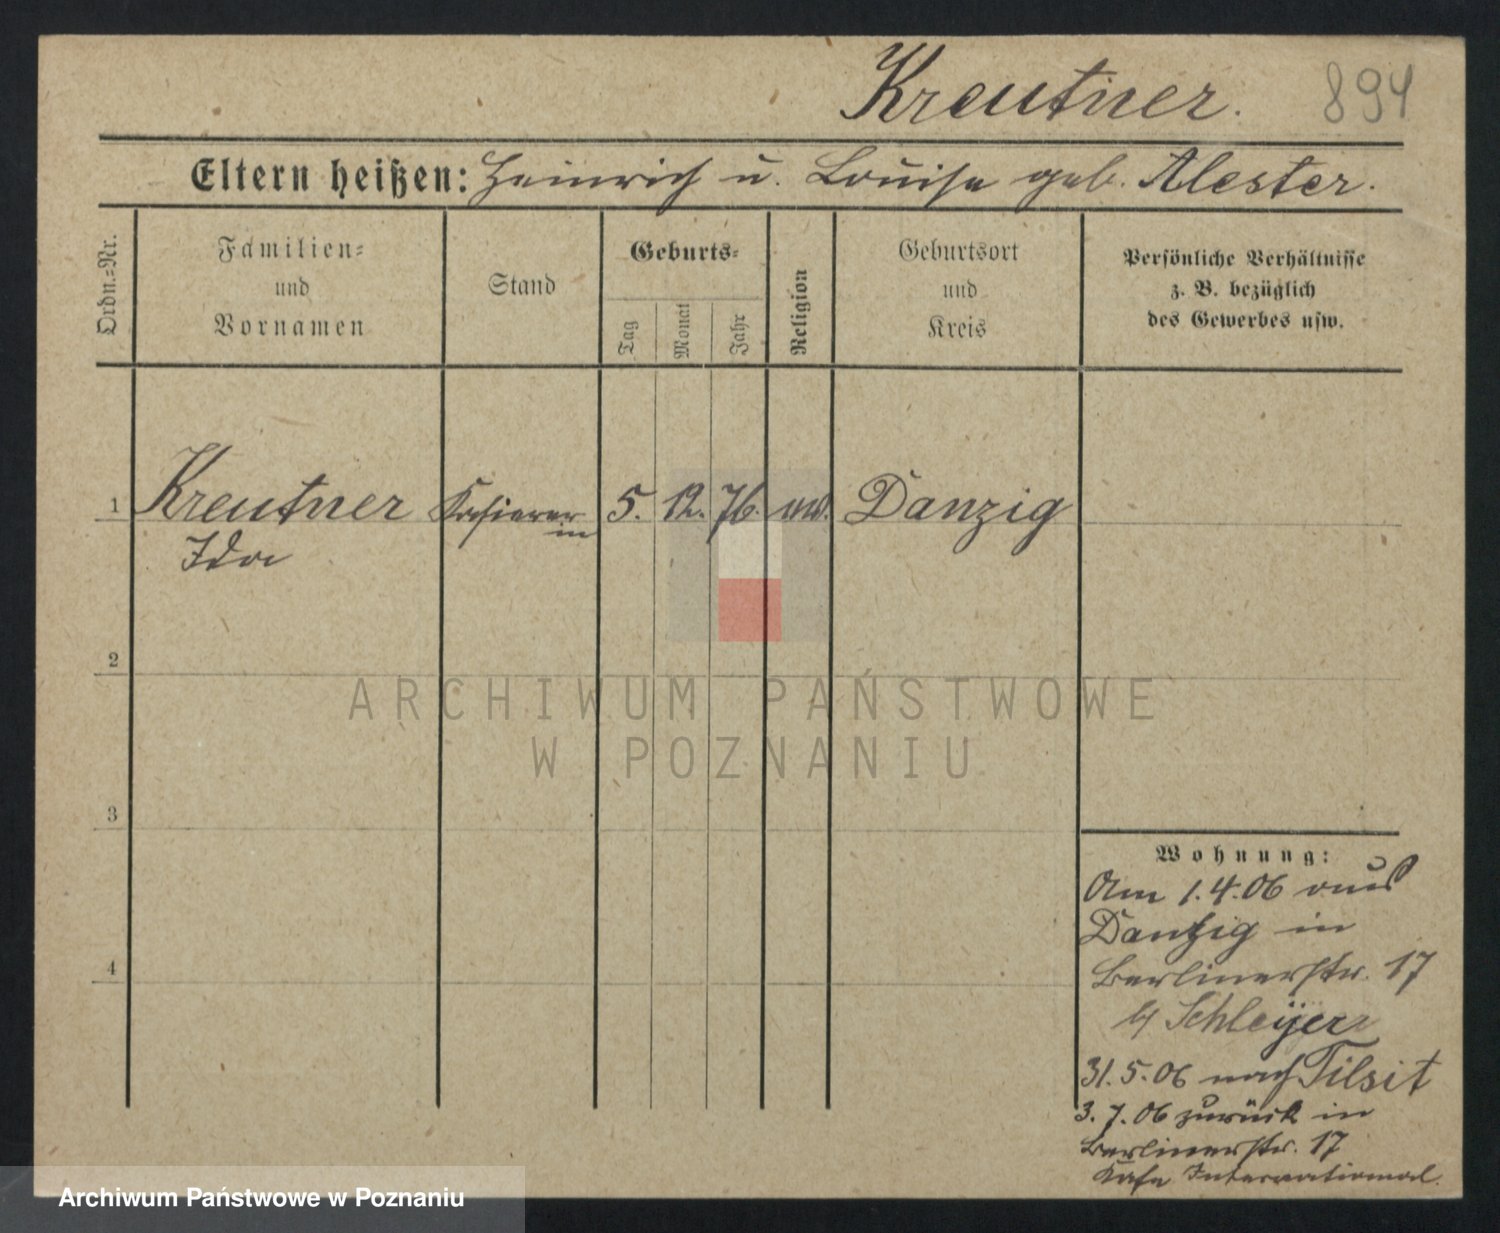 Kreutner. 894
Eltern heißen: Heinrich u. Louise geb. Alester.
Ordn.=Nr.
Familien=
und
Vornamen
Stand
Geburts=
Tag
Monat
Jahr
Religion
Geburtsort
und
Kreis
Persönliche Verhältnisse
z. B. bezüglich
des Gewerbes usw.
1 Kreutner Kassierer 5. 12. 76. Danzig
in
Ida
2
ARCHIWUM PAŃSTWOWE
W POZNANIU
3
4
Wohnung:
Am 1.4.06 aus
Danzig in
Berlinerstr. 17
b/ Schleyer
31.5.06 nach Tilsit
3.7.06 zurück in
Berlinerstr. 17
Kafe International.
Archiwum Państwowe w Poznaniu